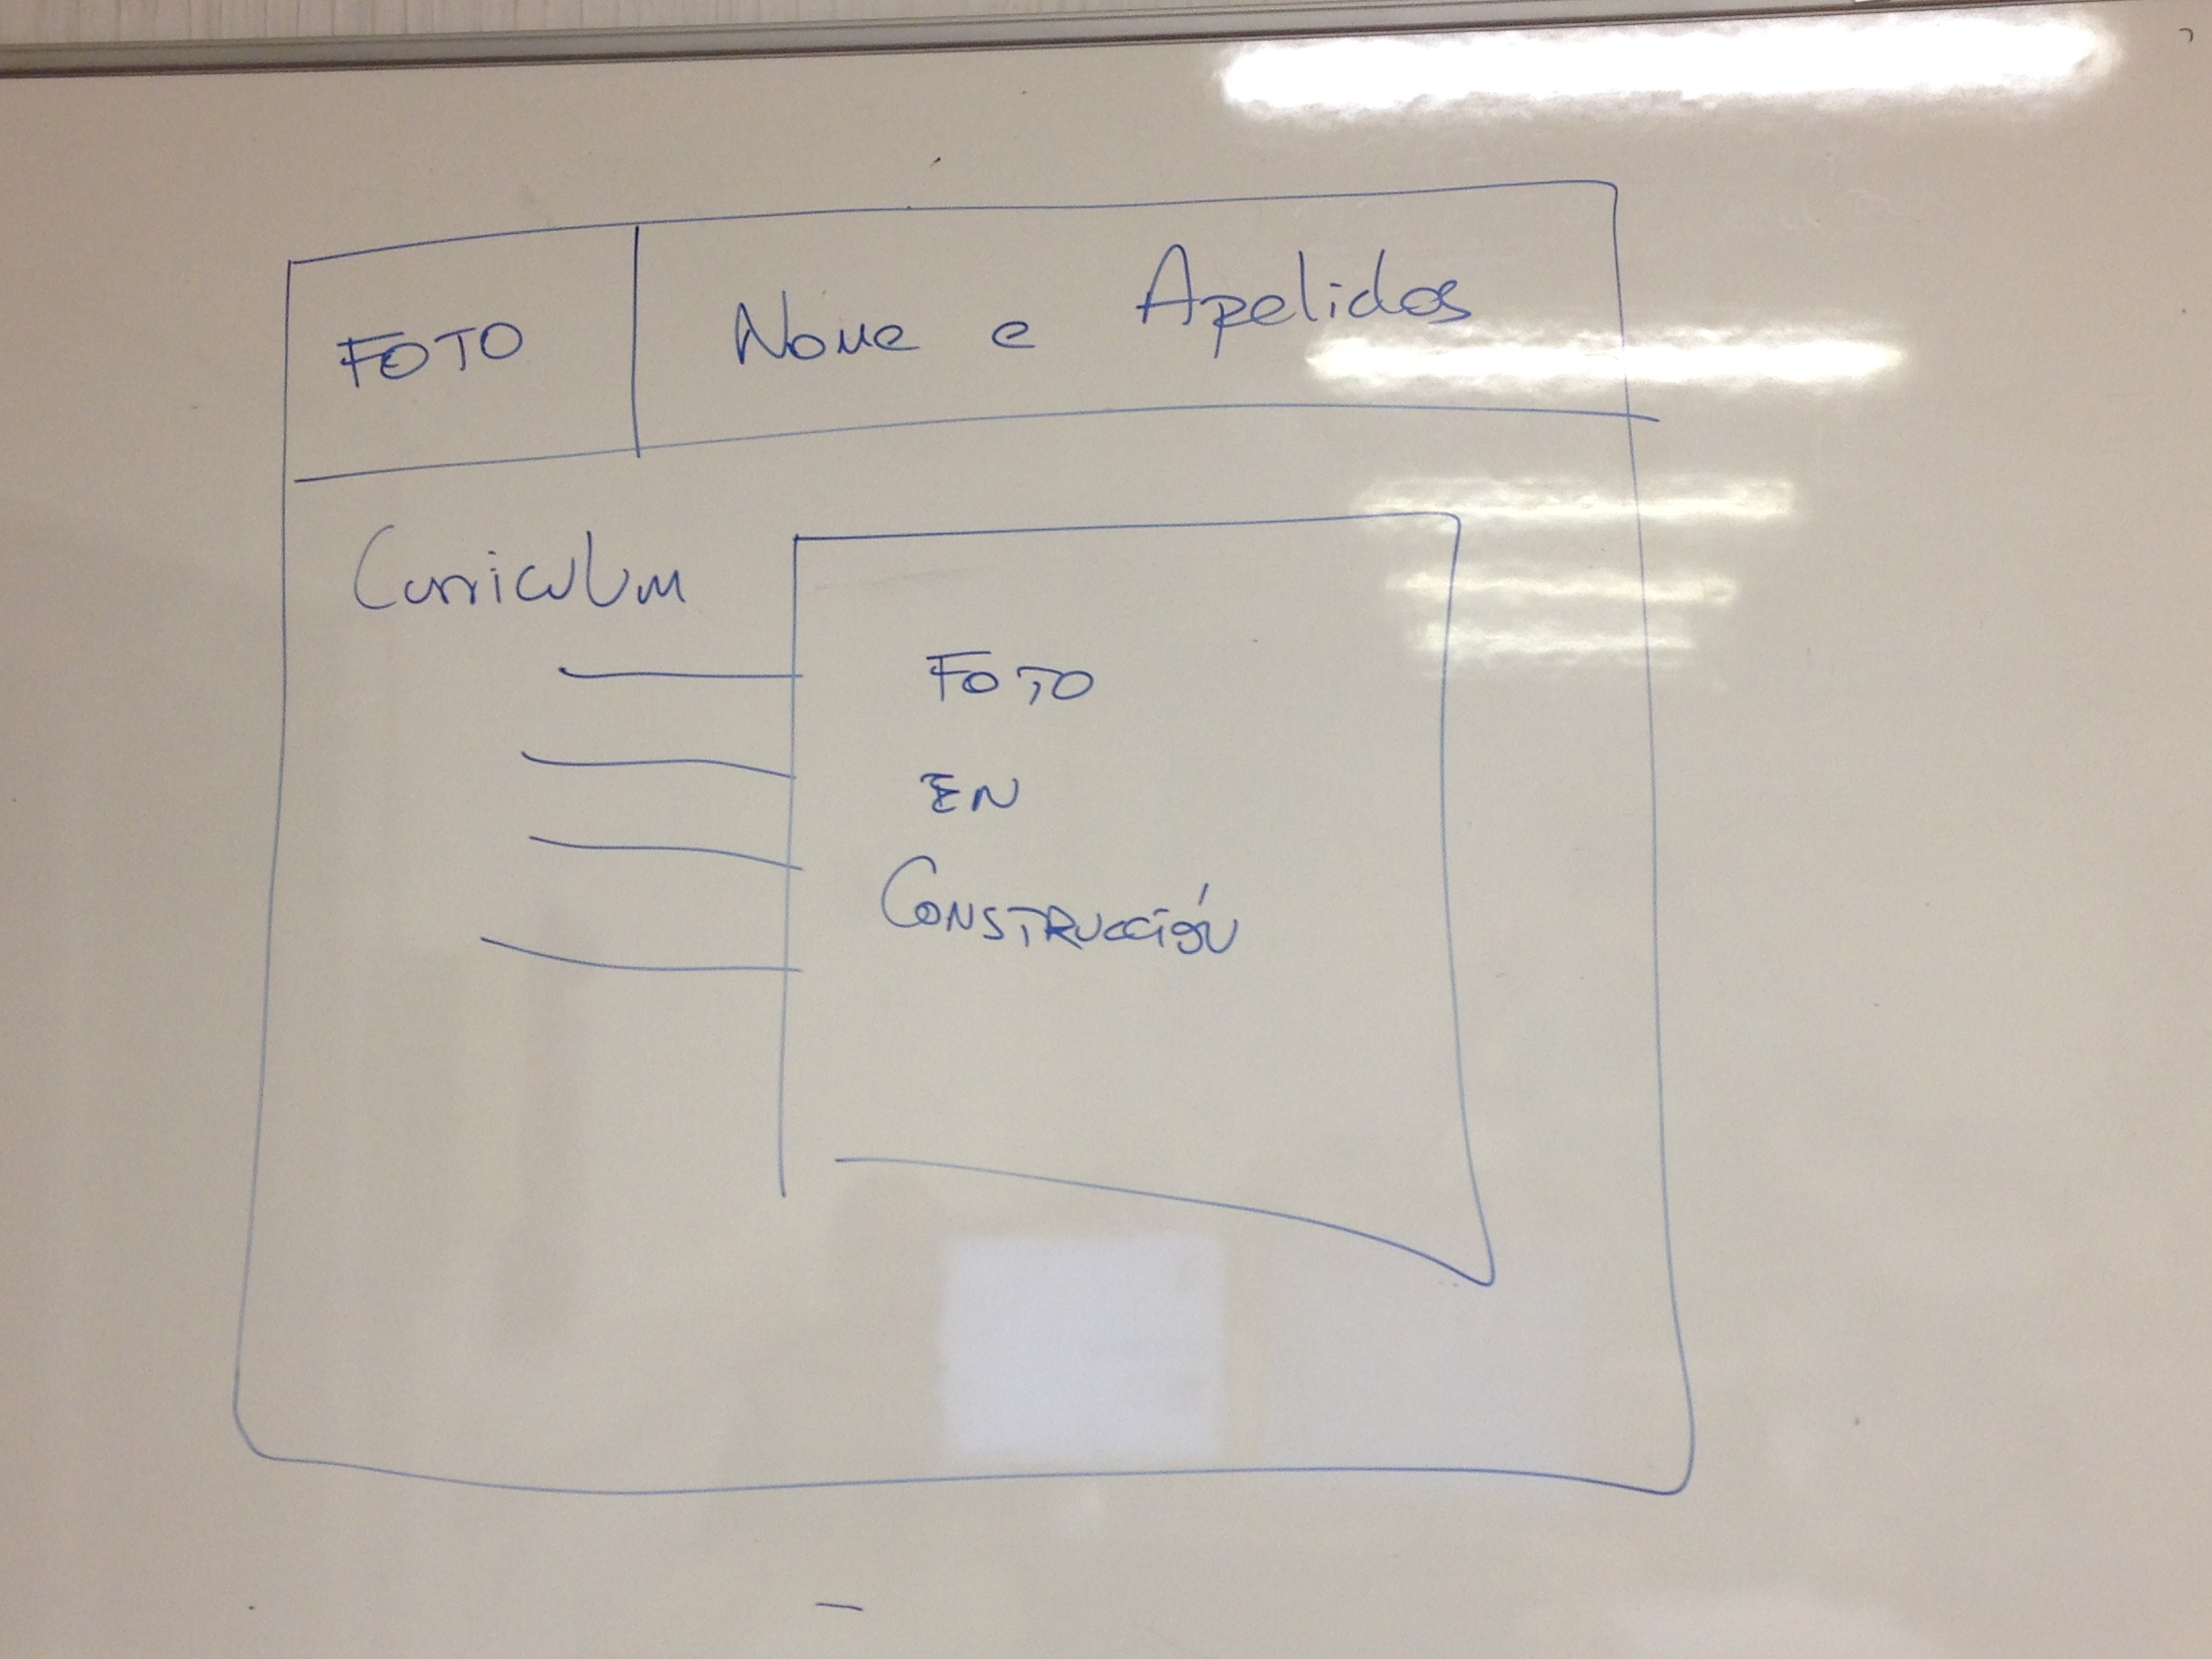 FOTO
Nome e Apelidos
Curriculum
FOTO
EN
CONSTRUCCIÓN